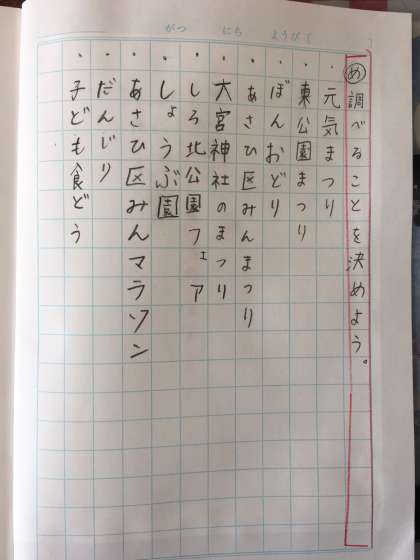 がつ にち ようび(
め 調べることを決めよう。
・元気まつり
・東公園まつり
・ぼんおどり
・あさひ区みんまつり
・大宮神社のまつり
・しろ北公園フェア
・しょうぶ園
・あさひ区みんマラソン
・だんじり
・子ども食どう